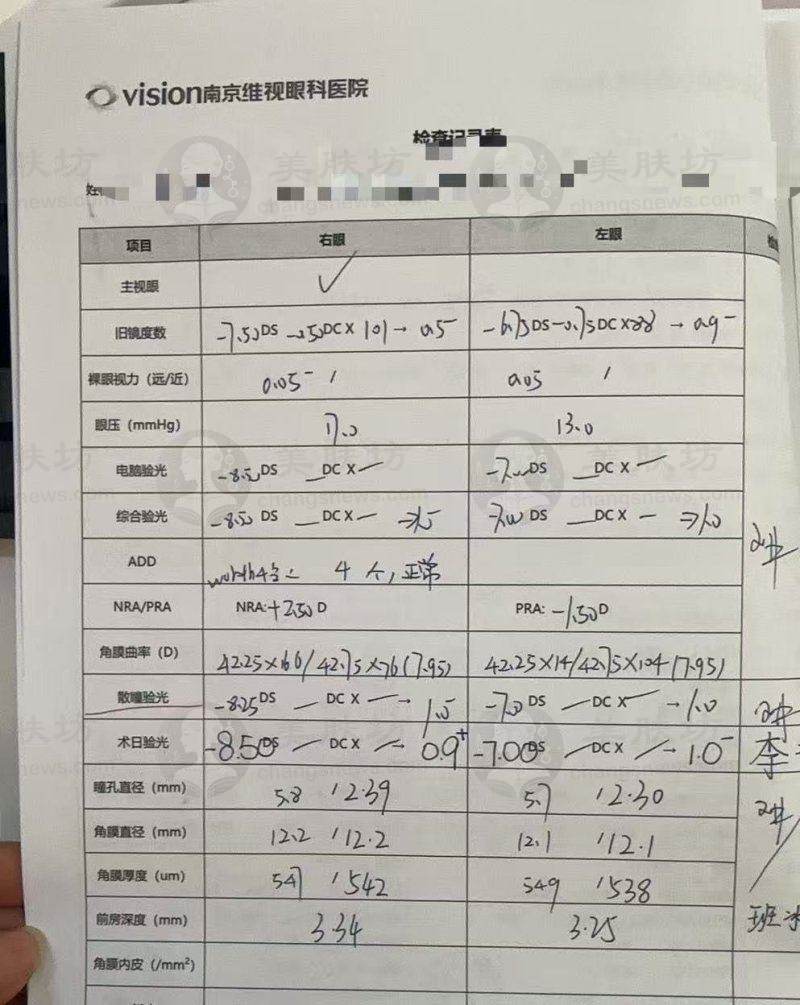 vision南京维视眼科医院
检查记录表
姓
项目 右眼 左眼
主视眼 ✓
旧镜度数 -7.50DS DC X 101 → 0.5- -6.75DS-0.75DC X88 → 0.9-
裸眼视力（远/近） 0.05- / 0.05 /
眼压（mmHg） 17.0 13.0
电脑验光 -8.50DS —DC X — -7.00DS —DC X —
综合验光 -8.50 DS —DC X — → -7.00 DS —DC X — → 1.0
ADD worth4点: 4个,正常
NRA/PRA NRA:+2.50D PRA: -1.50D
角膜曲率（D） 42.25×166/42.75×76(7.95) 42.25×14/42.75×104(7.95)
散瞳验光 -8.25DS —DC X — → 1.0- -7.0DS —DC X — → 1.0
术日验光 -8.50DS —DC X — → 0.9+ -7.00DS —DC X — → 1.0- 李
瞳孔直径（mm） 5.8 /2.39 5.7 /2.30
角膜直径（mm） 12.2 /12.2 12.1 /12.1
角膜厚度（um） 547 /542 549 /538
前房深度（mm） 3.34 3.25 班
角膜内皮（/mm²）
美肤坊
changsnews.com
美肤坊
changsnews.com
肤坊
news.com
美肤坊
changsnews.com
美肤坊
changsnews.com
肤坊
news.com
美肤坊
changsnews.com
美肤坊
changsnews.com